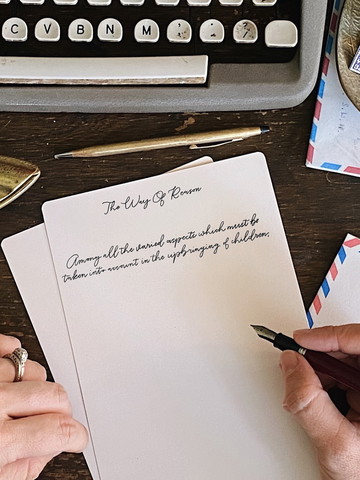 C V B N M
The Way Of Reason
Among all the varied aspects which must be
taken into account in the upbringing of children,